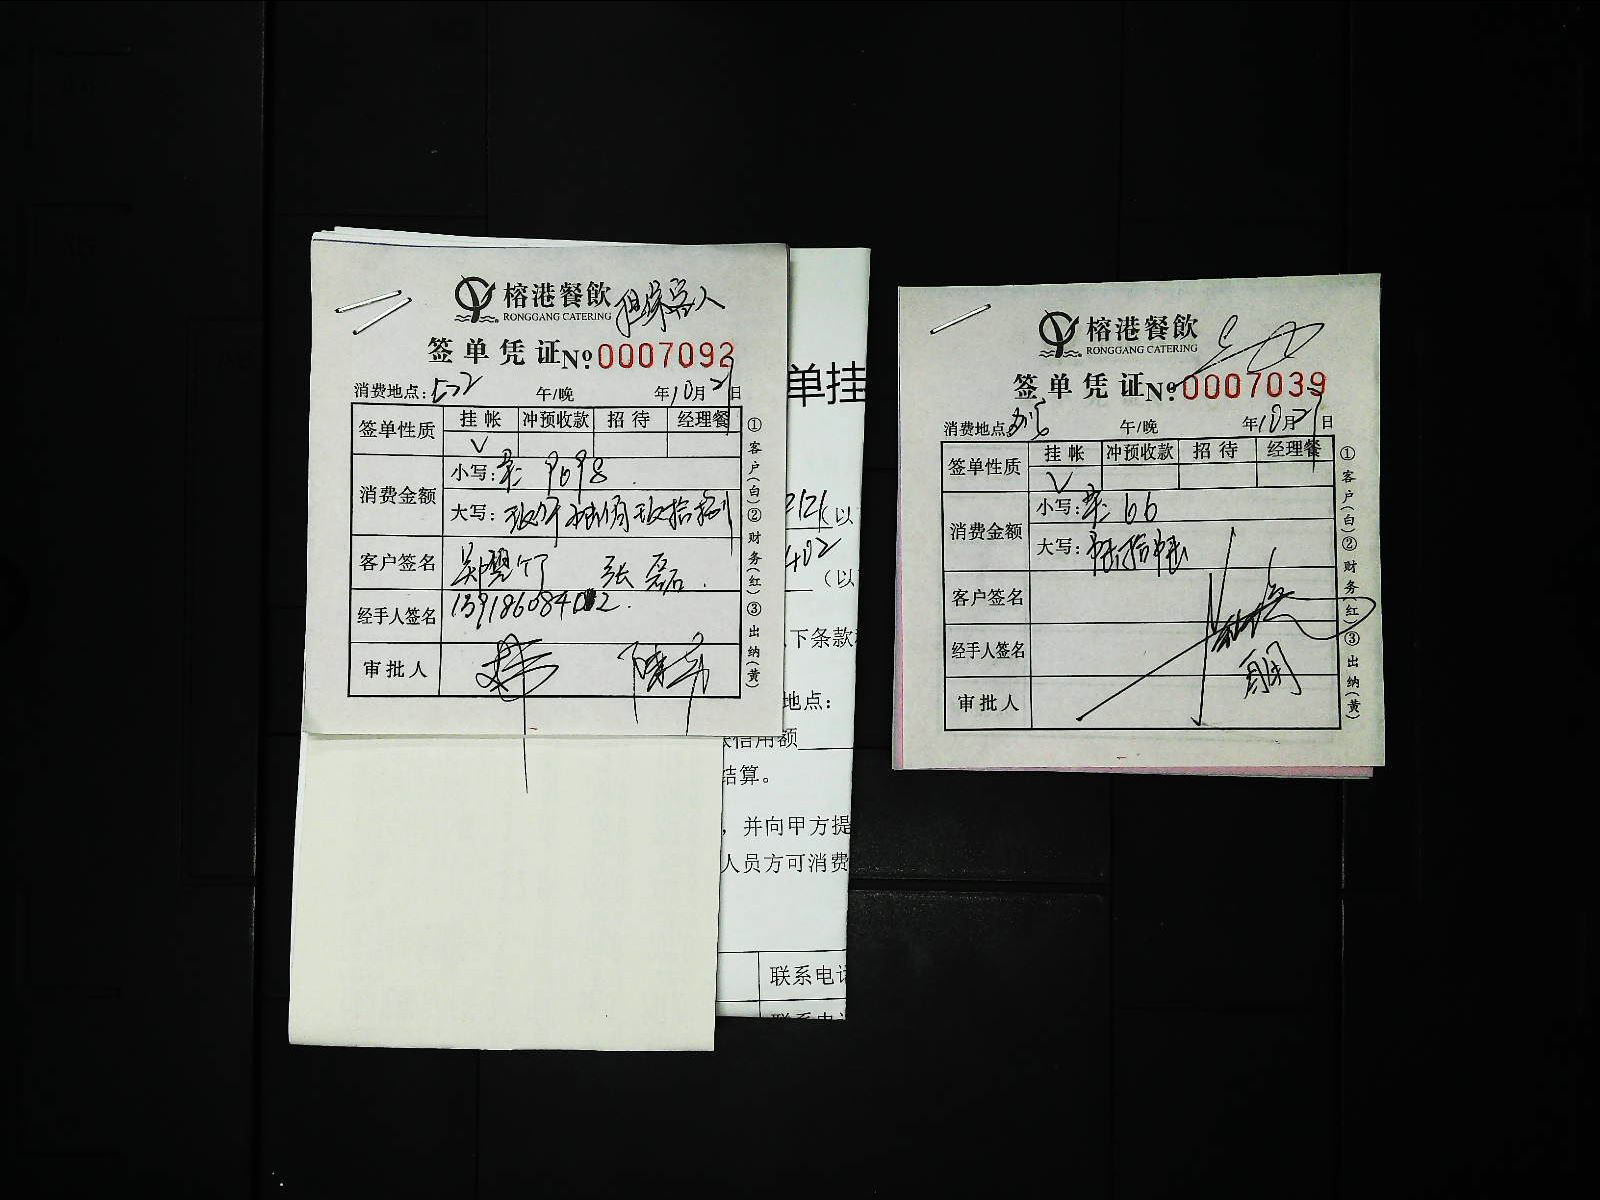 榕港餐飲 担保客人
RONGGANG CATERING
签单凭证 №:0007092
消费地点: 午/晚 年10月29日
签单性质 挂帐 冲预收款 招待 经理餐
V
消费金额 小写: 9698
大写: 玖仟陆佰玖拾捌
客户签名 张磊
经手人签名 13918608402
审批人
①客户(白)②财务(红)③出纳(黄)
单挂
(以
402
(以
下条款
地点:
信用额
结算。
,并向甲方提
人员方可消费
联系电话
联系电话
榕港餐飲
RONGGANG CATERING
签单凭证 №:0007039
消费地点: 午/晚 年10月29日
签单性质 挂帐 冲预收款 招待 经理餐
V
消费金额 小写: 66
大写: 陆拾陆
客户签名
经手人签名
审批人
①客户(白)②财务(红)③出纳(黄)